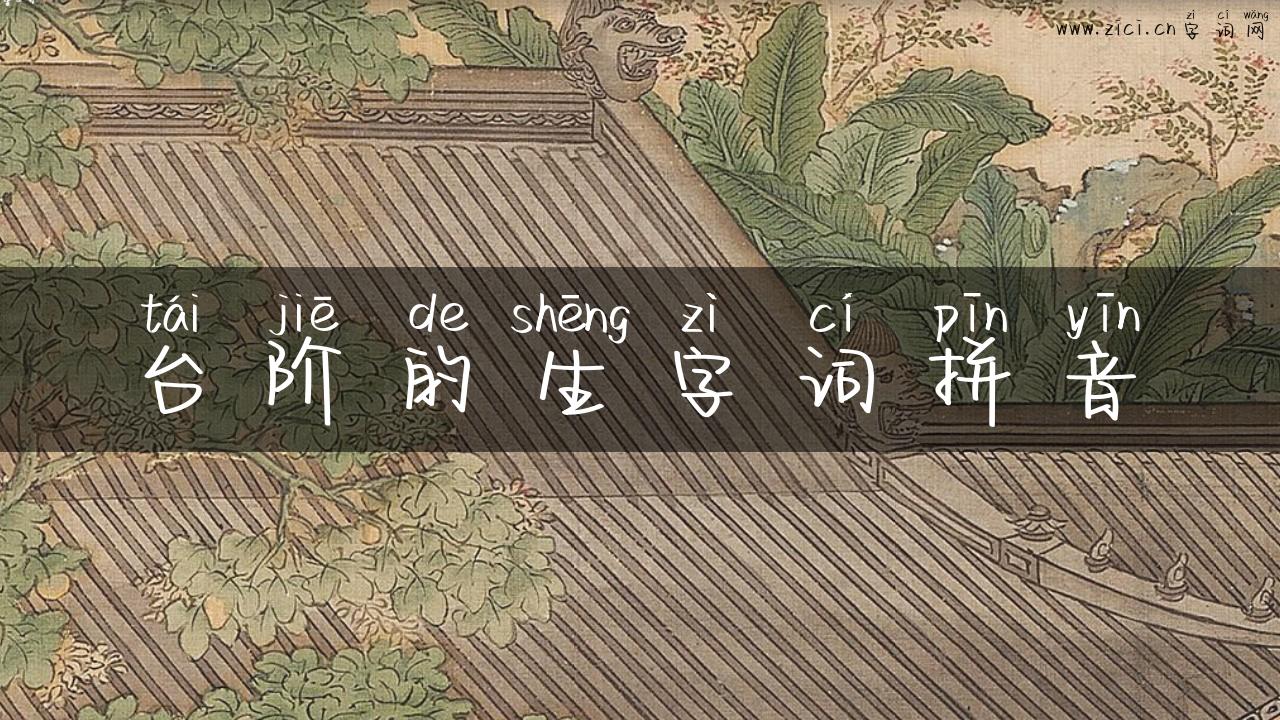 zì cí wǎng
www.zici.cn 字 词 网
tái jiē de shēng zì cí pīn yīn
台 阶 的 生 字 词 拼 音